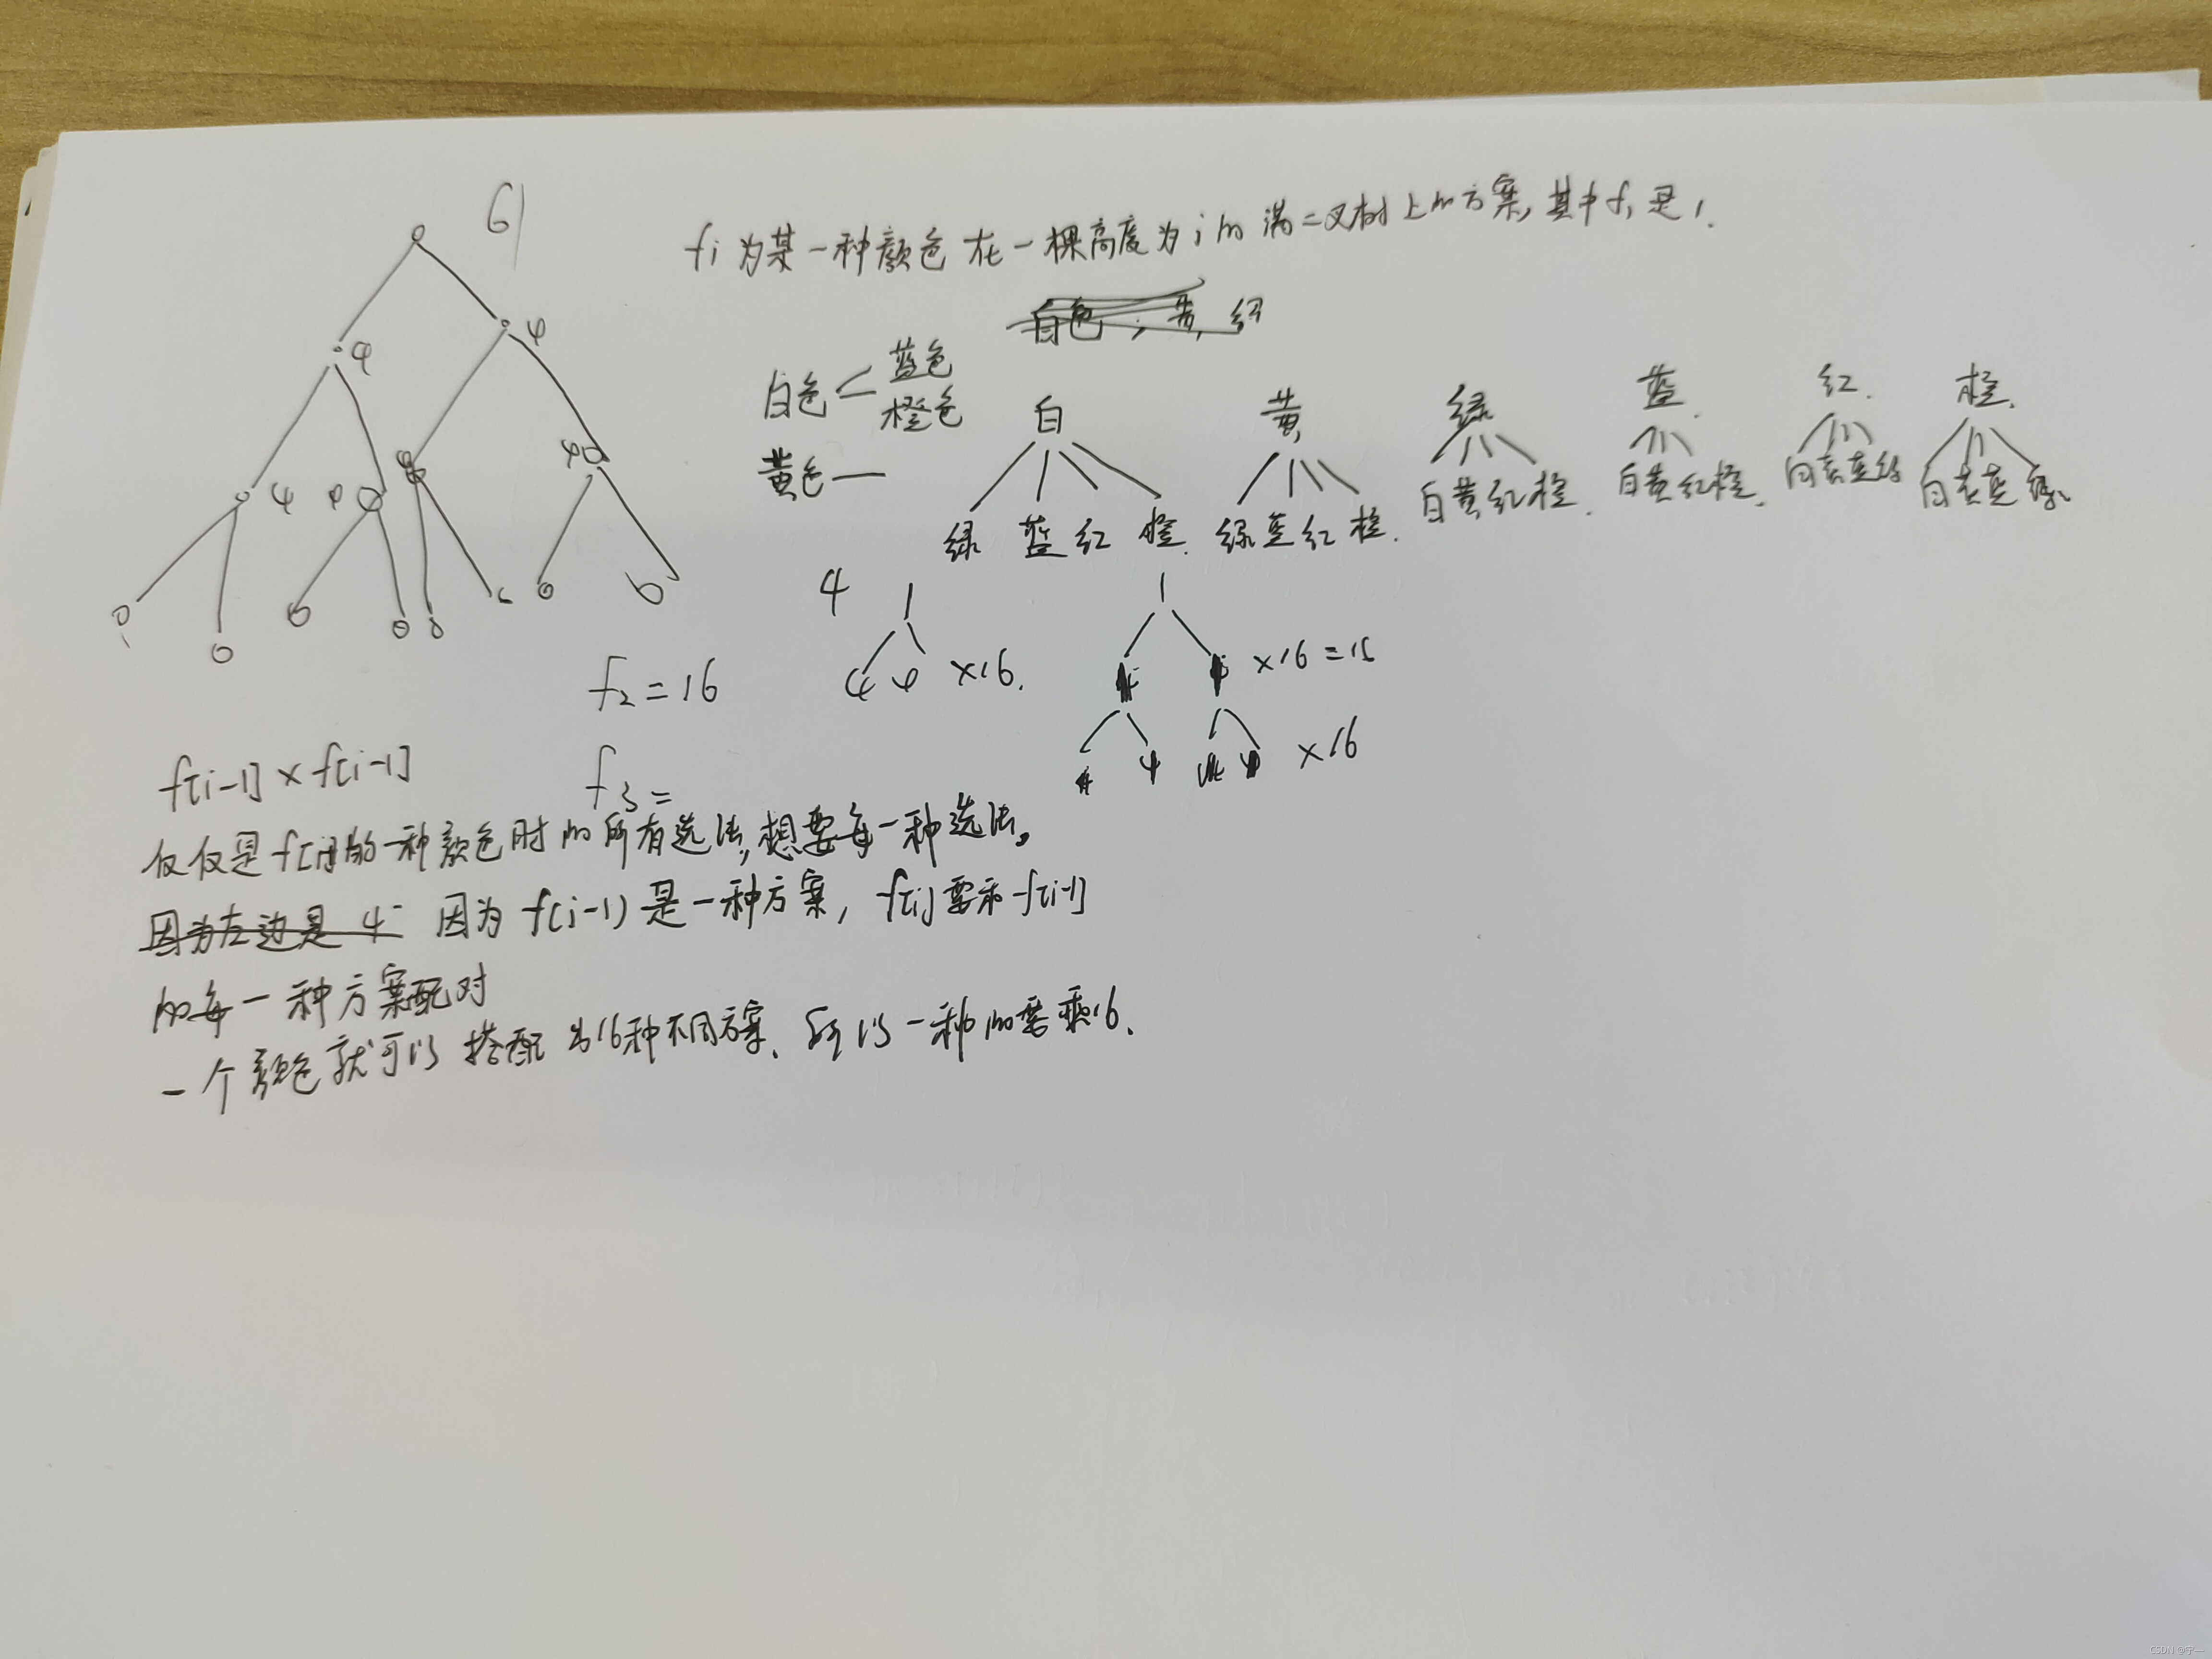 6
fi 为某一种颜色在一棵高度为 i 的满二叉树上的方案, 其中 f1 是 1.
白色 , 黄, 红
白色 < 蓝色 橙色
黄色 —
白 黄 绿 蓝. 红. 橙.
绿 蓝 红 橙. 绿 蓝 红 橙. 白黄红橙. 白黄红橙. 白黄蓝绿 白黄蓝绿.
4 4
4 4
4 4 4 4
4 1 1
4 4 ×16. ×16=16
f2=16
4 ×16
f[i-1] × f[i-1]
f3=
仅仅是 f[i] 的一种颜色时的所有选法, 想要每一种选法。
因为左边是 4 因为 f(i-1) 是一种方案, f[i] 要和 f[i-1]
的每一种方案配对
一个颜色就可以搭配出16种不同方案. 所以一种的要乘16.
CSDN @宇一